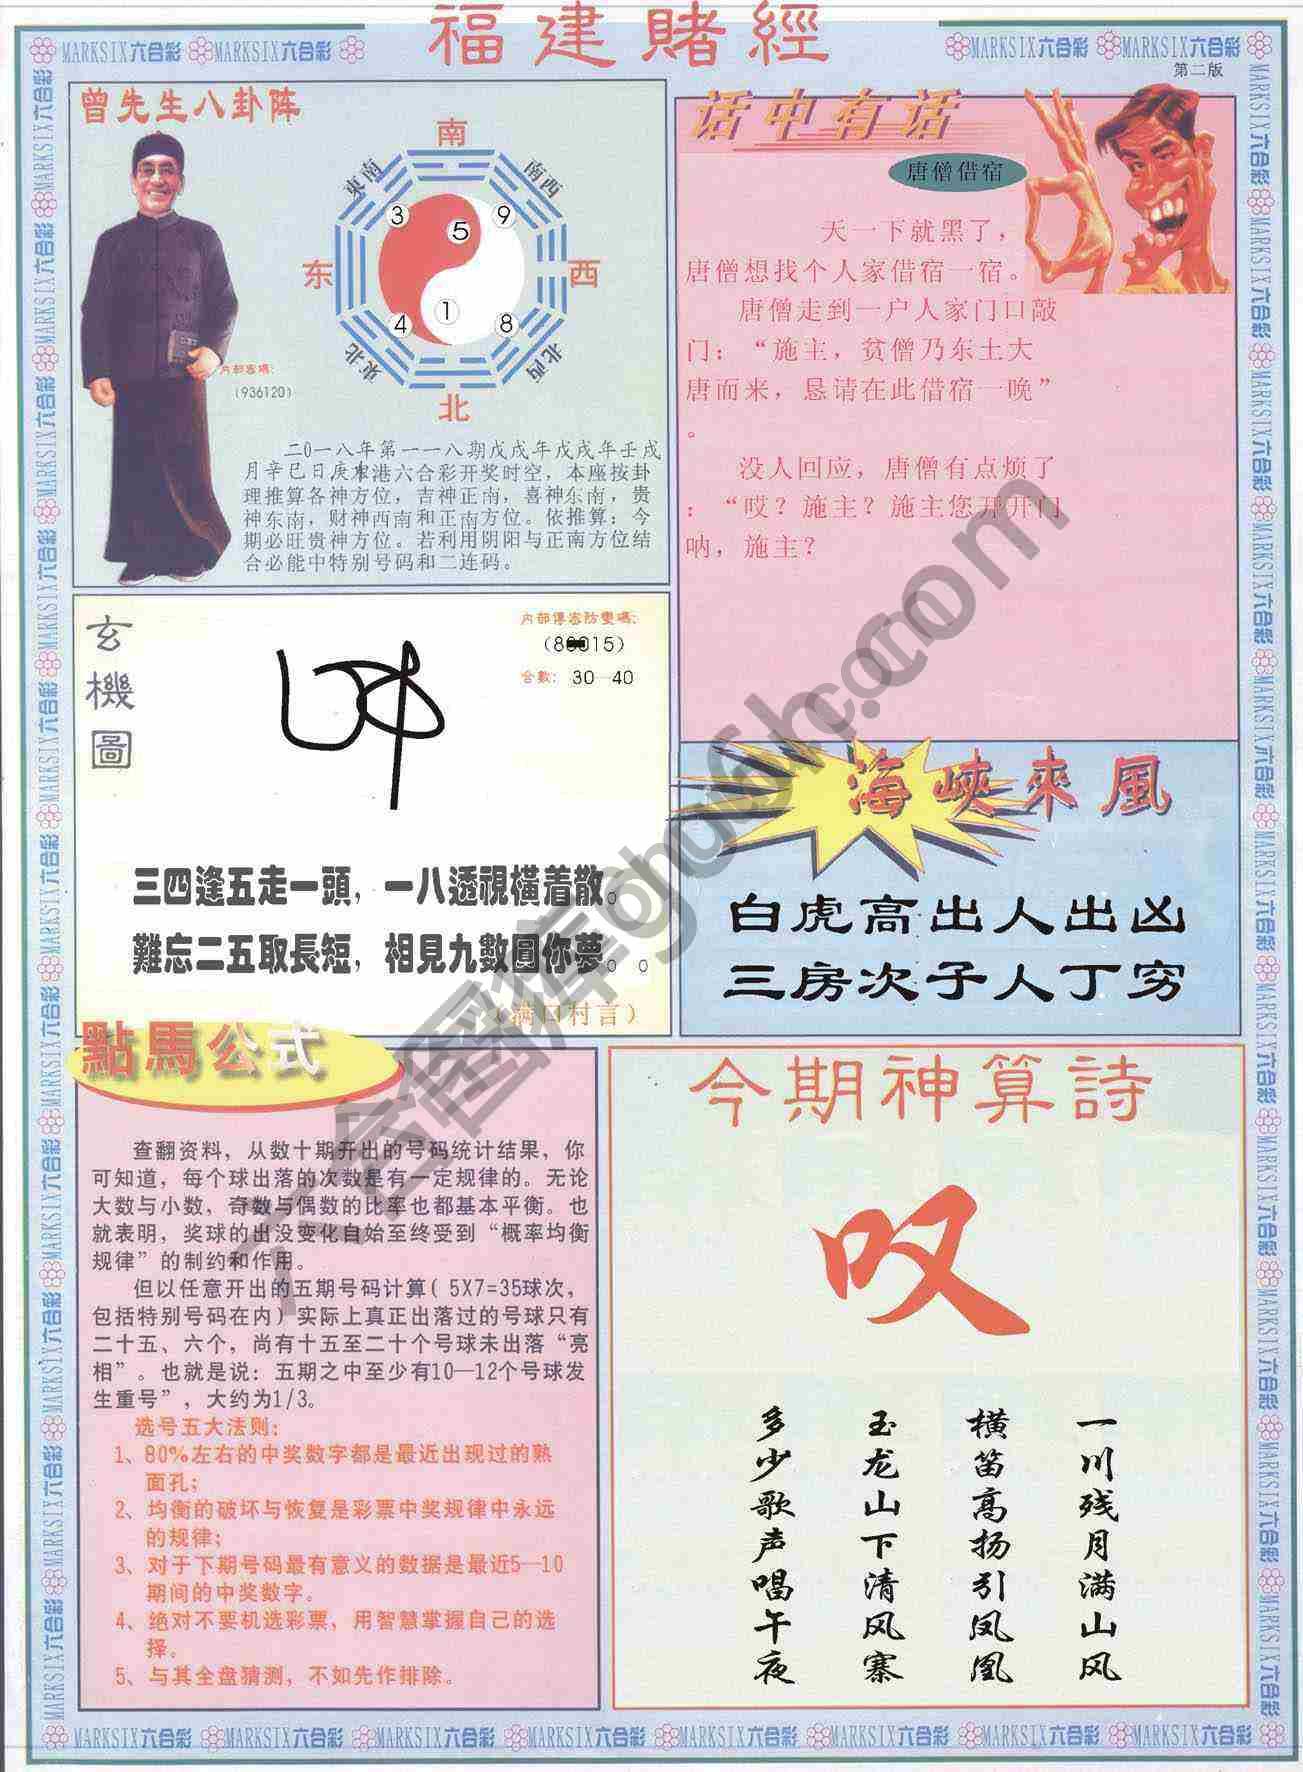 福建賭經
MARKSIX六合彩 MARKSIX六合彩
MARKSIX六合彩 MARKSIX六合彩
第二版
曾先生八卦阵
南
東南
南西
3
5
9
东
西
4
1
8
東北
北西
北
内部密碼:
(936120)
二O一八年第一一八期戊戌年戊戌年壬戌
月辛巳日庚寅港六合彩开奖时空，本座按卦
理推算各神方位，吉神正南，喜神东南，贵
神东南，财神西南和正南方位。依推算：今
期必旺贵神方位。若利用阴阳与正南方位结
合必能中特别号码和二连码。
话中有话
唐僧借宿
天一下就黑了，
唐僧想找个人家借宿一宿。
唐僧走到一户人家门口敲
门：“施主，贫僧乃东土大
唐而来，恳请在此借宿一晚”
。
没人回应，唐僧有点烦了
：“哎？施主？施主您开开门
呐，施主？
玄機圖
内部傳密防變碼:
合數: 30—40
三四逢五走一頭，一八透視橫着散。
難忘二五取長短，相見九數圓你夢。。
（满口村言）
海峽來風
白虎高出人出凶
三房次子人丁穷
點馬公式
查翻资料，从数十期开出的号码统计结果，你
可知道，每个球出落的次数是有一定规律的。无论
大数与小数，奇数与偶数的比率也都基本平衡。也
就表明，奖球的出没变化自始至终受到“概率均衡
规律”的制约和作用。
但以任意开出的五期号码计算( 5X7=35球次，
包括特别号码在内）实际上真正出落过的号球只有
二十五、六个，尚有十五至二十个号球未出落“亮
相”。也就是说：五期之中至少有10—12个号球发
生重号”，大约为1/3。
选号五大法则：
1、80%左右的中奖数字都是最近出现过的熟
面孔；
2、均衡的破坏与恢复是彩票中奖规律中永远
的规律；
3、对于下期号码最有意义的数据是最近5—10
期间的中奖数字。
4、绝对不要机选彩票，用智慧掌握自己的选
择。
5、与其全盘猜测，不如先作排除。
今期神算詩
叹
一川残月满山风
横笛高扬引凤凰
玉龙山下清风寨
多少歌声唱午夜
MARKSIX六合彩 MARKSIX六合彩 MARKSIX六合彩 MARKSIX六合彩 MARKSIX六合彩 MARKSIX六合彩 MARKSIX六合彩 MARKSIX六合彩